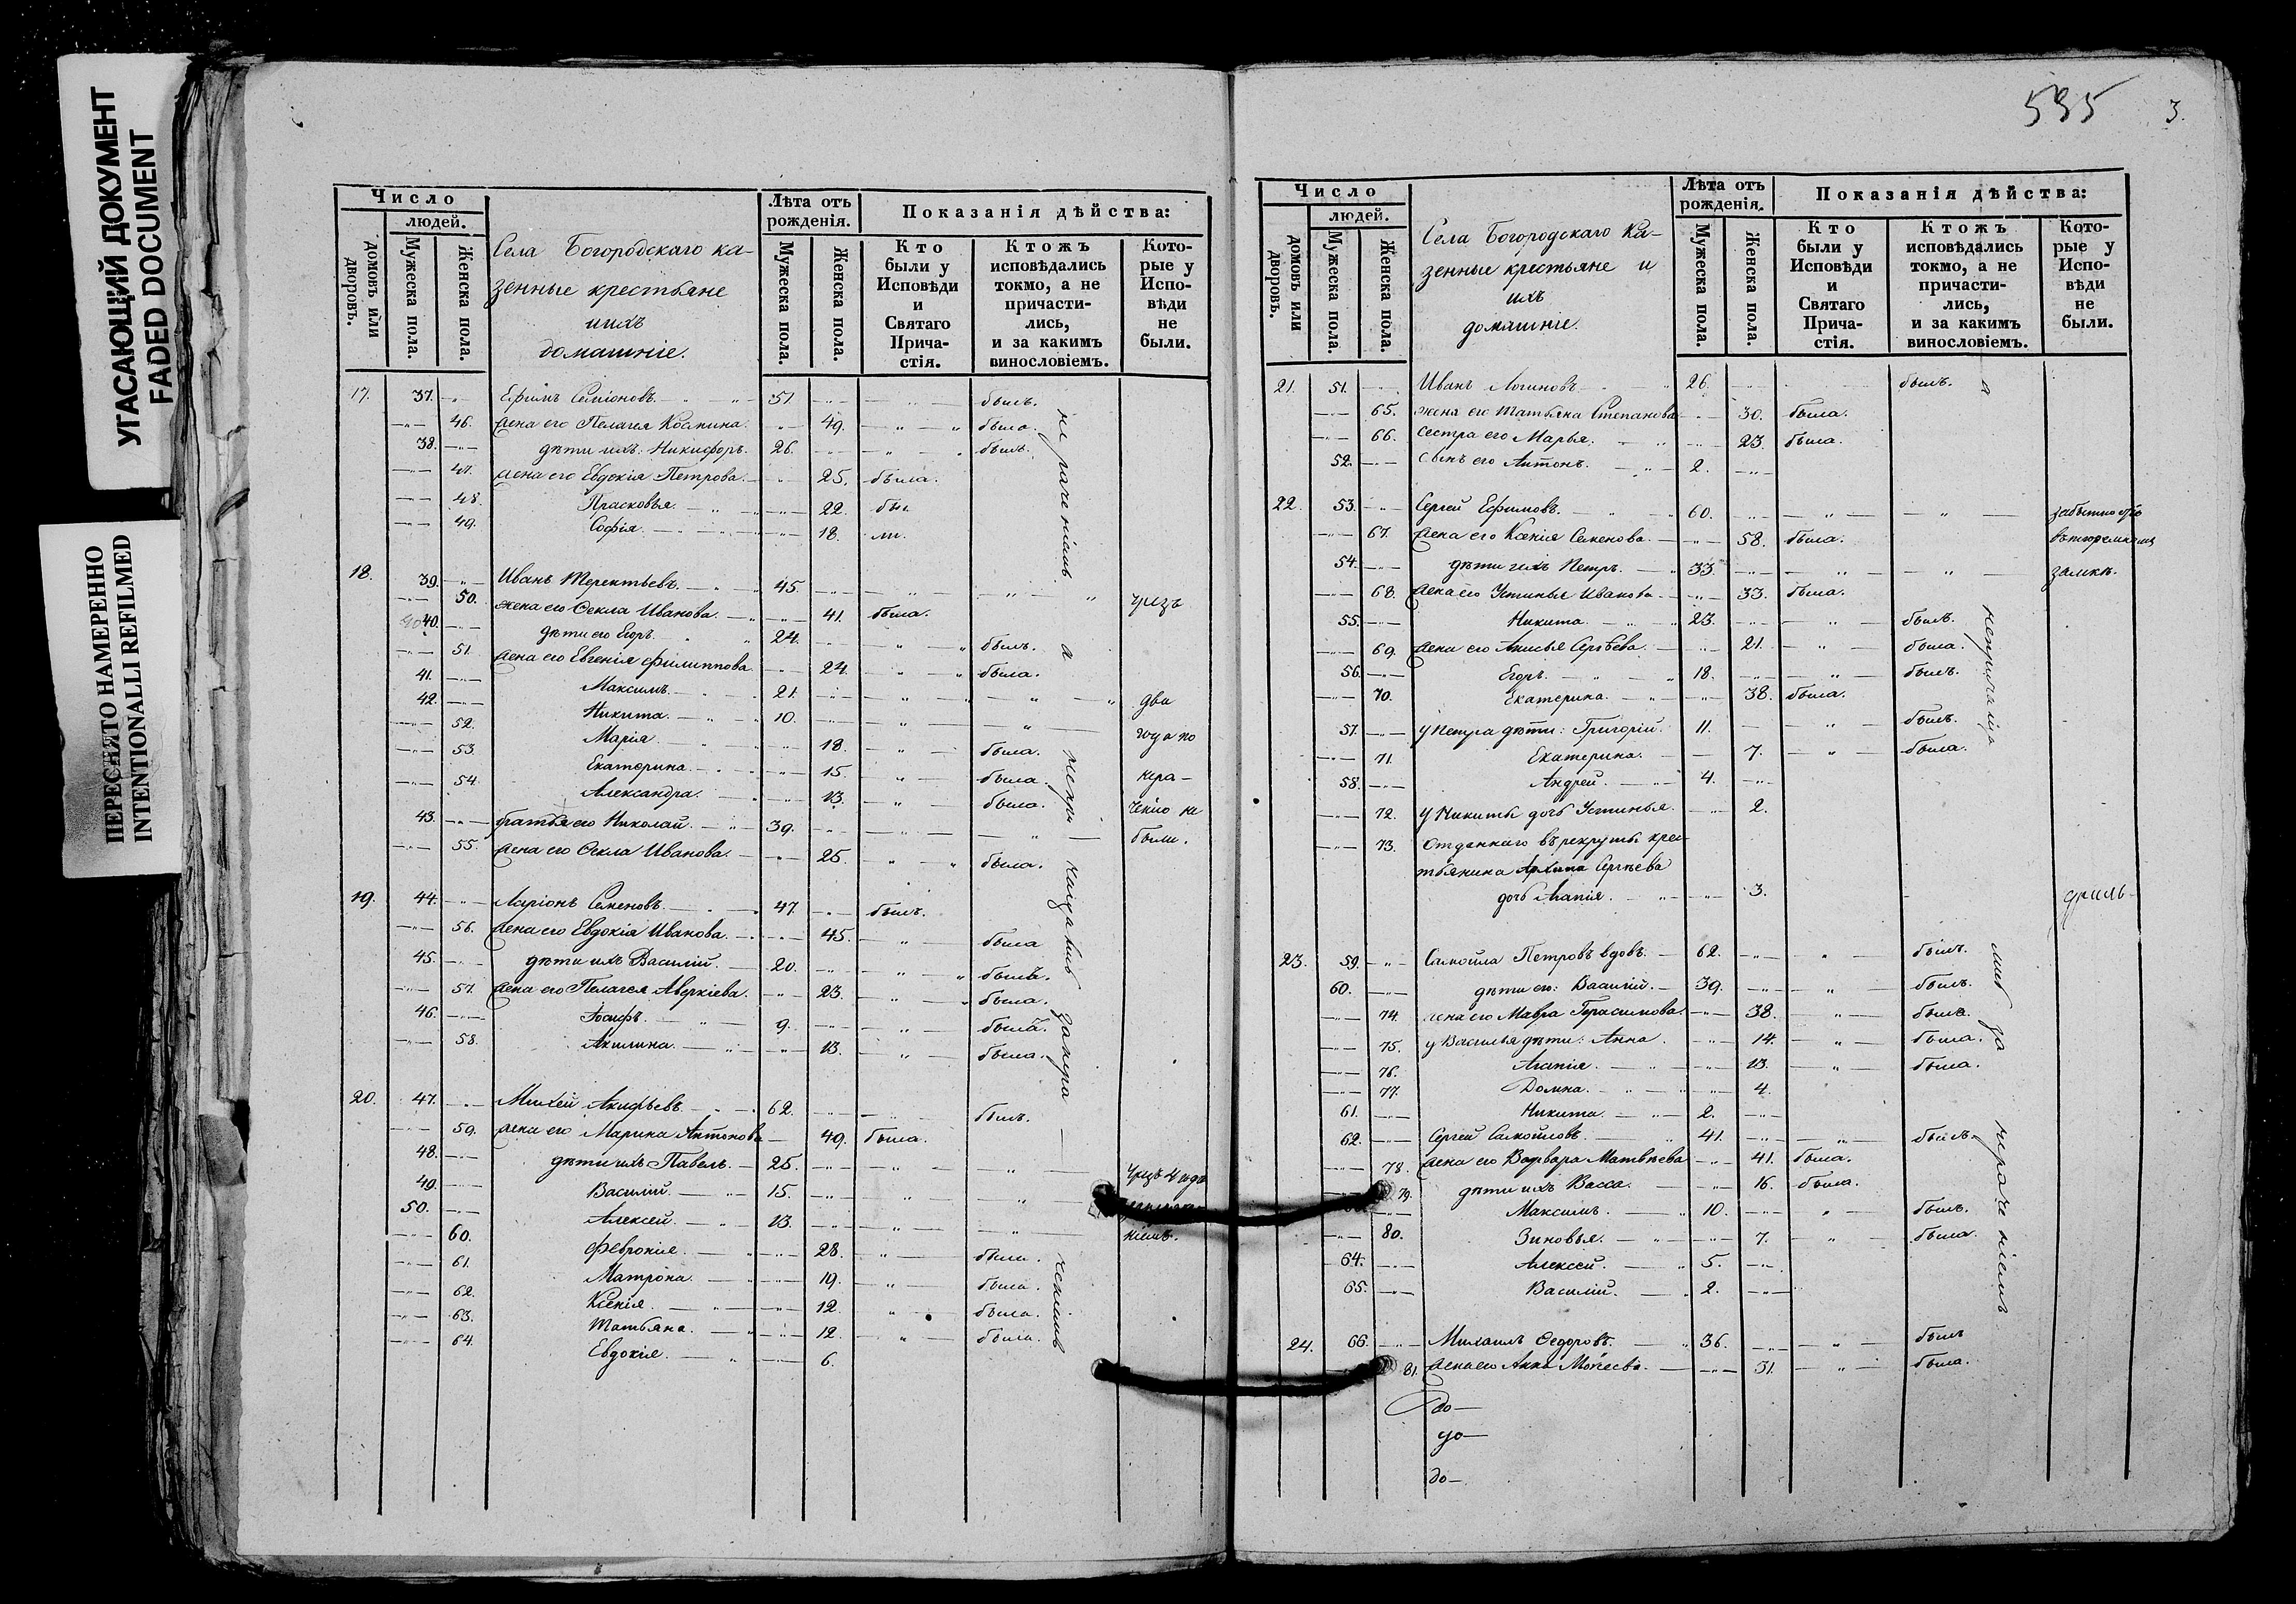 УГАСАЮЩИЙ ДОКУМЕНТ
FADED DOCUMENT
ПЕРЕСНЯТО НАМЕРЕННО
INTENTIONALLI REFILMED
Число
людей.
домовъ или дворовъ.
Мужеска пола.
Женска пола.
Села Богородскаго ка-
зенные крестьяне
и ихъ
домашніе.
Лѣта отъ
рожденія.
Мужеска пола.
Женска пола.
Показанія дѣйства:
Кто
были у
Исповѣди
и
Святаго
Прича-
стія.
Ктожъ
исповѣдались
токмо, а не
причасти-
лись,
и за какимъ
винословіемъ.
Кото-
рые у
Испо-
вѣди
не
были.
17. 37. Ефимъ Семіоновъ. 51 былъ.
46. жена его Пелагея Козмина. 49. была.
38. дѣти ихъ: Никифоръ. 26. былъ.
47. жена его Евдокія Петрова. 25. была.
48. Прасковья. 22.
49. Софія. 18.
18. 39. Иванъ Терентьевъ. 45. чрезъ
50. жена его Ѳекла Иванова. 41. была.
40. дѣти его Егоръ. 24. былъ.
51. жена его Евгенія Филиппова 24. была.
41. Максимъ. 21. два
42. Никита. 10. года по
52. Марія. 18. была.
53. Екатерина. 15. была. нера-
54. Александра. 13. была. ченію не
43. братъ его Николай. 39. были.
55. жена его Ѳекла Иванова. 25. была.
19. 44. Ларіонъ Семеновъ. 47. былъ.
56. жена его Евдокія Иванова. 45. была
45. дѣти ихъ Василій. 20. былъ.
57. жена его Пелагея Аверкіева. 23. была.
46. Іосифъ. 9.
58. Акилина. 13. была.
20. 47. Михей Акифьевъ 62. былъ.
59. жена его Марина Антонова 49. была.
48. дѣти ихъ Павелъ. 25.
49. Василій. 15.
50. Алексей. 13.
60. Февронія. 28. была.
61. Матрона. 19. была.
62. Ксенія. 12. была.
63. Татьяна. 12. была.
64. Евдокія. 6.
не раченіемъ
а
535
3.
Число
людей.
домовъ или дворовъ.
Мужеска пола.
Женска пола.
Села Богородскаго Ка-
зенные крестьяне и
ихъ
домашніе.
Лѣта отъ
рожденія.
Мужеска пола.
Женска пола.
Показанія дѣйства:
Кто
были у
Исповѣди
и
Святаго
Прича-
стія.
Ктожъ
исповѣдались
токмо, а не
причасти-
лись,
и за какимъ
винословіемъ.
Кото-
рые у
Испо-
вѣди
не
были.
21. 51. Иванъ Логиновъ 26. былъ.
65. жена его Татьяна Степанова 30. была.
66. сестра его Марья. 23. была.
52. сынъ его Антонъ. 2.
22. 53. Сергей Ефимовъ. 60.
67. жена его Ксенія Семенова. 58. была.
54. дѣти ихъ Петръ. 33. замкѣ.
68. жена его Устинья Иванова 33. была.
55. Никита. 23. былъ.
69. жена его Анисья Сергѣева. 21. была.
56. Егоръ. 18. былъ.
70. Екатерина. 38. была.
57. у Петра дѣти: Григорій. 11. былъ.
71. Екатерина. 7. была.
58. Андрей. 4.
72. у Никиты дочь Устинья. 2.
73. Отданнаго въ рекруты крес-
тьянина Архипа Сергѣева
дочь Агапія. 3.
23. 59. Самойла Петровъ вдовъ. 62. былъ.
60. дѣти его: Василій. 39. былъ.
74. жена его Мавра Герасимова. 38. была.
75. у Василья дѣти: Анна. 14. была.
76. Агапія. 13. была.
77. Домна. 4.
61. Никита. 2.
62. Сергей Самойловъ. 41. былъ.
78. жена его Варвара Матвѣева 41. была.
79. дѣти ихъ Васса. 16. была.
Максимъ. 10. былъ.
80. Зиновья. 7. была.
64. Алексей. 5.
65. Василій. 2.
24. 66. Михаилъ Ѳедоровъ. 36. былъ
81. жена его Анна Моѵсеева. 31. была.
до—
до—
до—
а
за
нераченіемъ